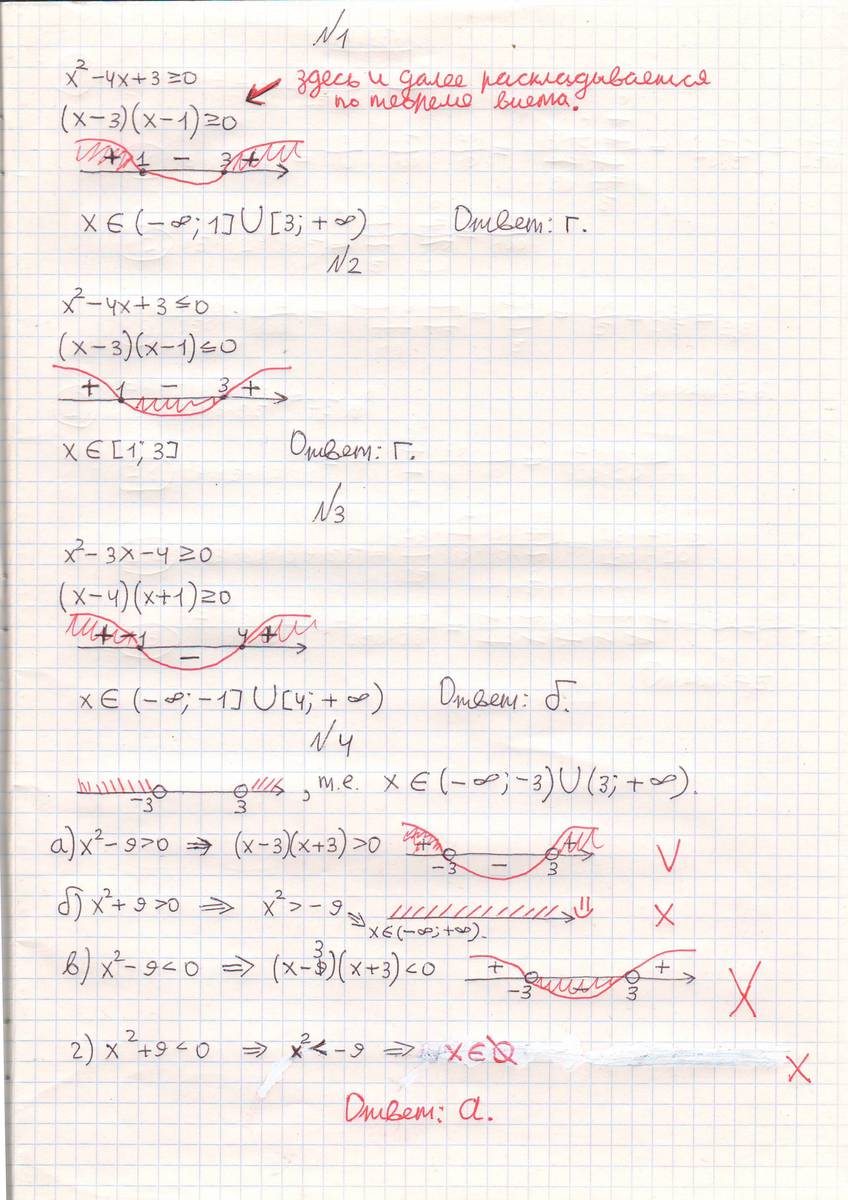 №1
x² - 4x + 3 ≥ 0
здесь и далее раскладывается
по теореме виета.
(x-3)(x-1) ≥ 0
+ 1 - 3 +
x ∈ (-∞; 1] ∪ [3; +∞) Ответ: г.
№2
x² - 4x + 3 ≤ 0
(x-3)(x-1) ≤ 0
+ 1 - 3 +
x ∈ [1; 3] Ответ: г.
№3
x² - 3x - 4 ≥ 0
(x-4)(x+1) ≥ 0
+ -1 - 4 +
x ∈ (-∞; -1] ∪ [4; +∞) Ответ: б.
№4
-3 3 , т.е. x ∈ (-∞; -3) ∪ (3; +∞).
а) x² - 9 > 0 ⇒ (x-3)(x+3) > 0 + -3 - 3 + V
б) x² + 9 > 0 ⇒ x² > -9 ⇒ x ∈ (-∞; +∞). X
в) x² - 9 < 0 ⇒ (x-3)(x+3) < 0 + -3 - 3 + X
г) x² + 9 < 0 ⇒ x² < -9 ⇒ x ∈ ∅ X
Ответ: а.